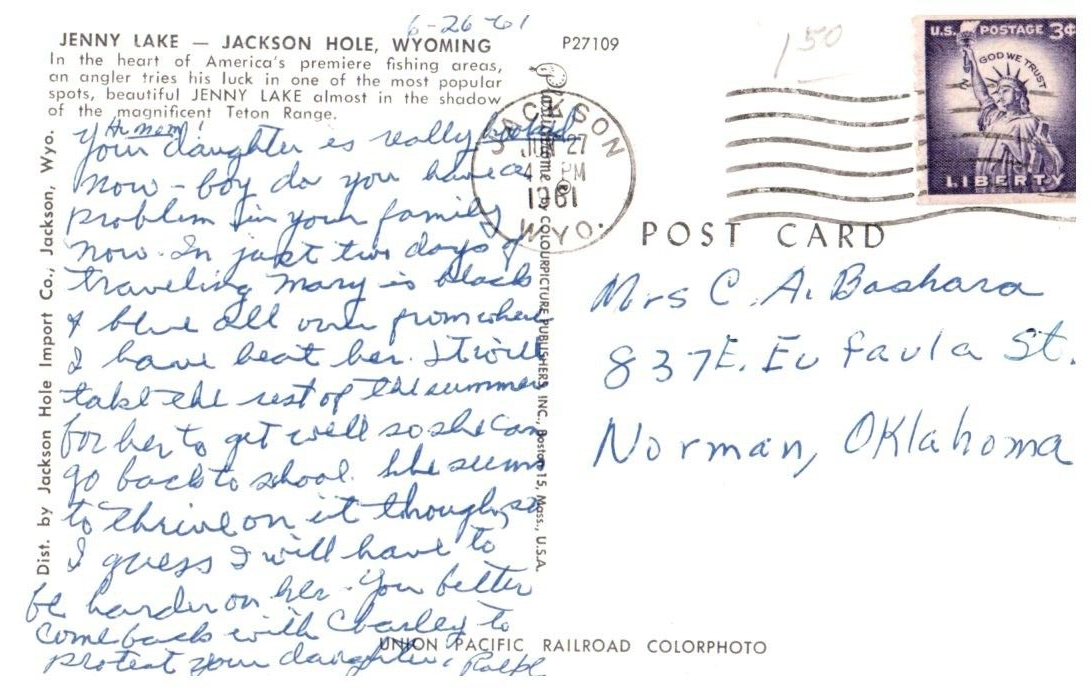 6-26-61
JENNY LAKE — JACKSON HOLE, WYOMING
In the heart of America's premiere fishing areas,
an angler tries his luck in one of the most popular
spots, beautiful JENNY LAKE almost in the shadow
of the magnificent Teton Range.
P27109
150
U.S. POSTAGE 3¢
IN GOD WE TRUST
LIBERTY
JACKSON
JUN 27
4 PM
1961
WYO.
POST CARD
Hi Mem!
Your daughter is really
now - boy do you have a
problem in your family
now. In just two days of
traveling Mary is black
& blue all over from where
I have beat her. It will
take the rest of the summer
for her to get well so she can
go back to school. She seems
to thrive on it though, so
I guess I will have to
be harder on her. You better
come back with Charley to
protect your daughter. Ralph
Mrs C. A. Bashara
837 E. Eufaula St.
Norman, Oklahoma
Dist. by Jackson Hole Import Co., Jackson, Wyo.
Plastichrome ® by COLOURPICTURE PUBLISHERS, INC., Boston 15, Mass., U.S.A.
UNION PACIFIC RAILROAD COLORPHOTO